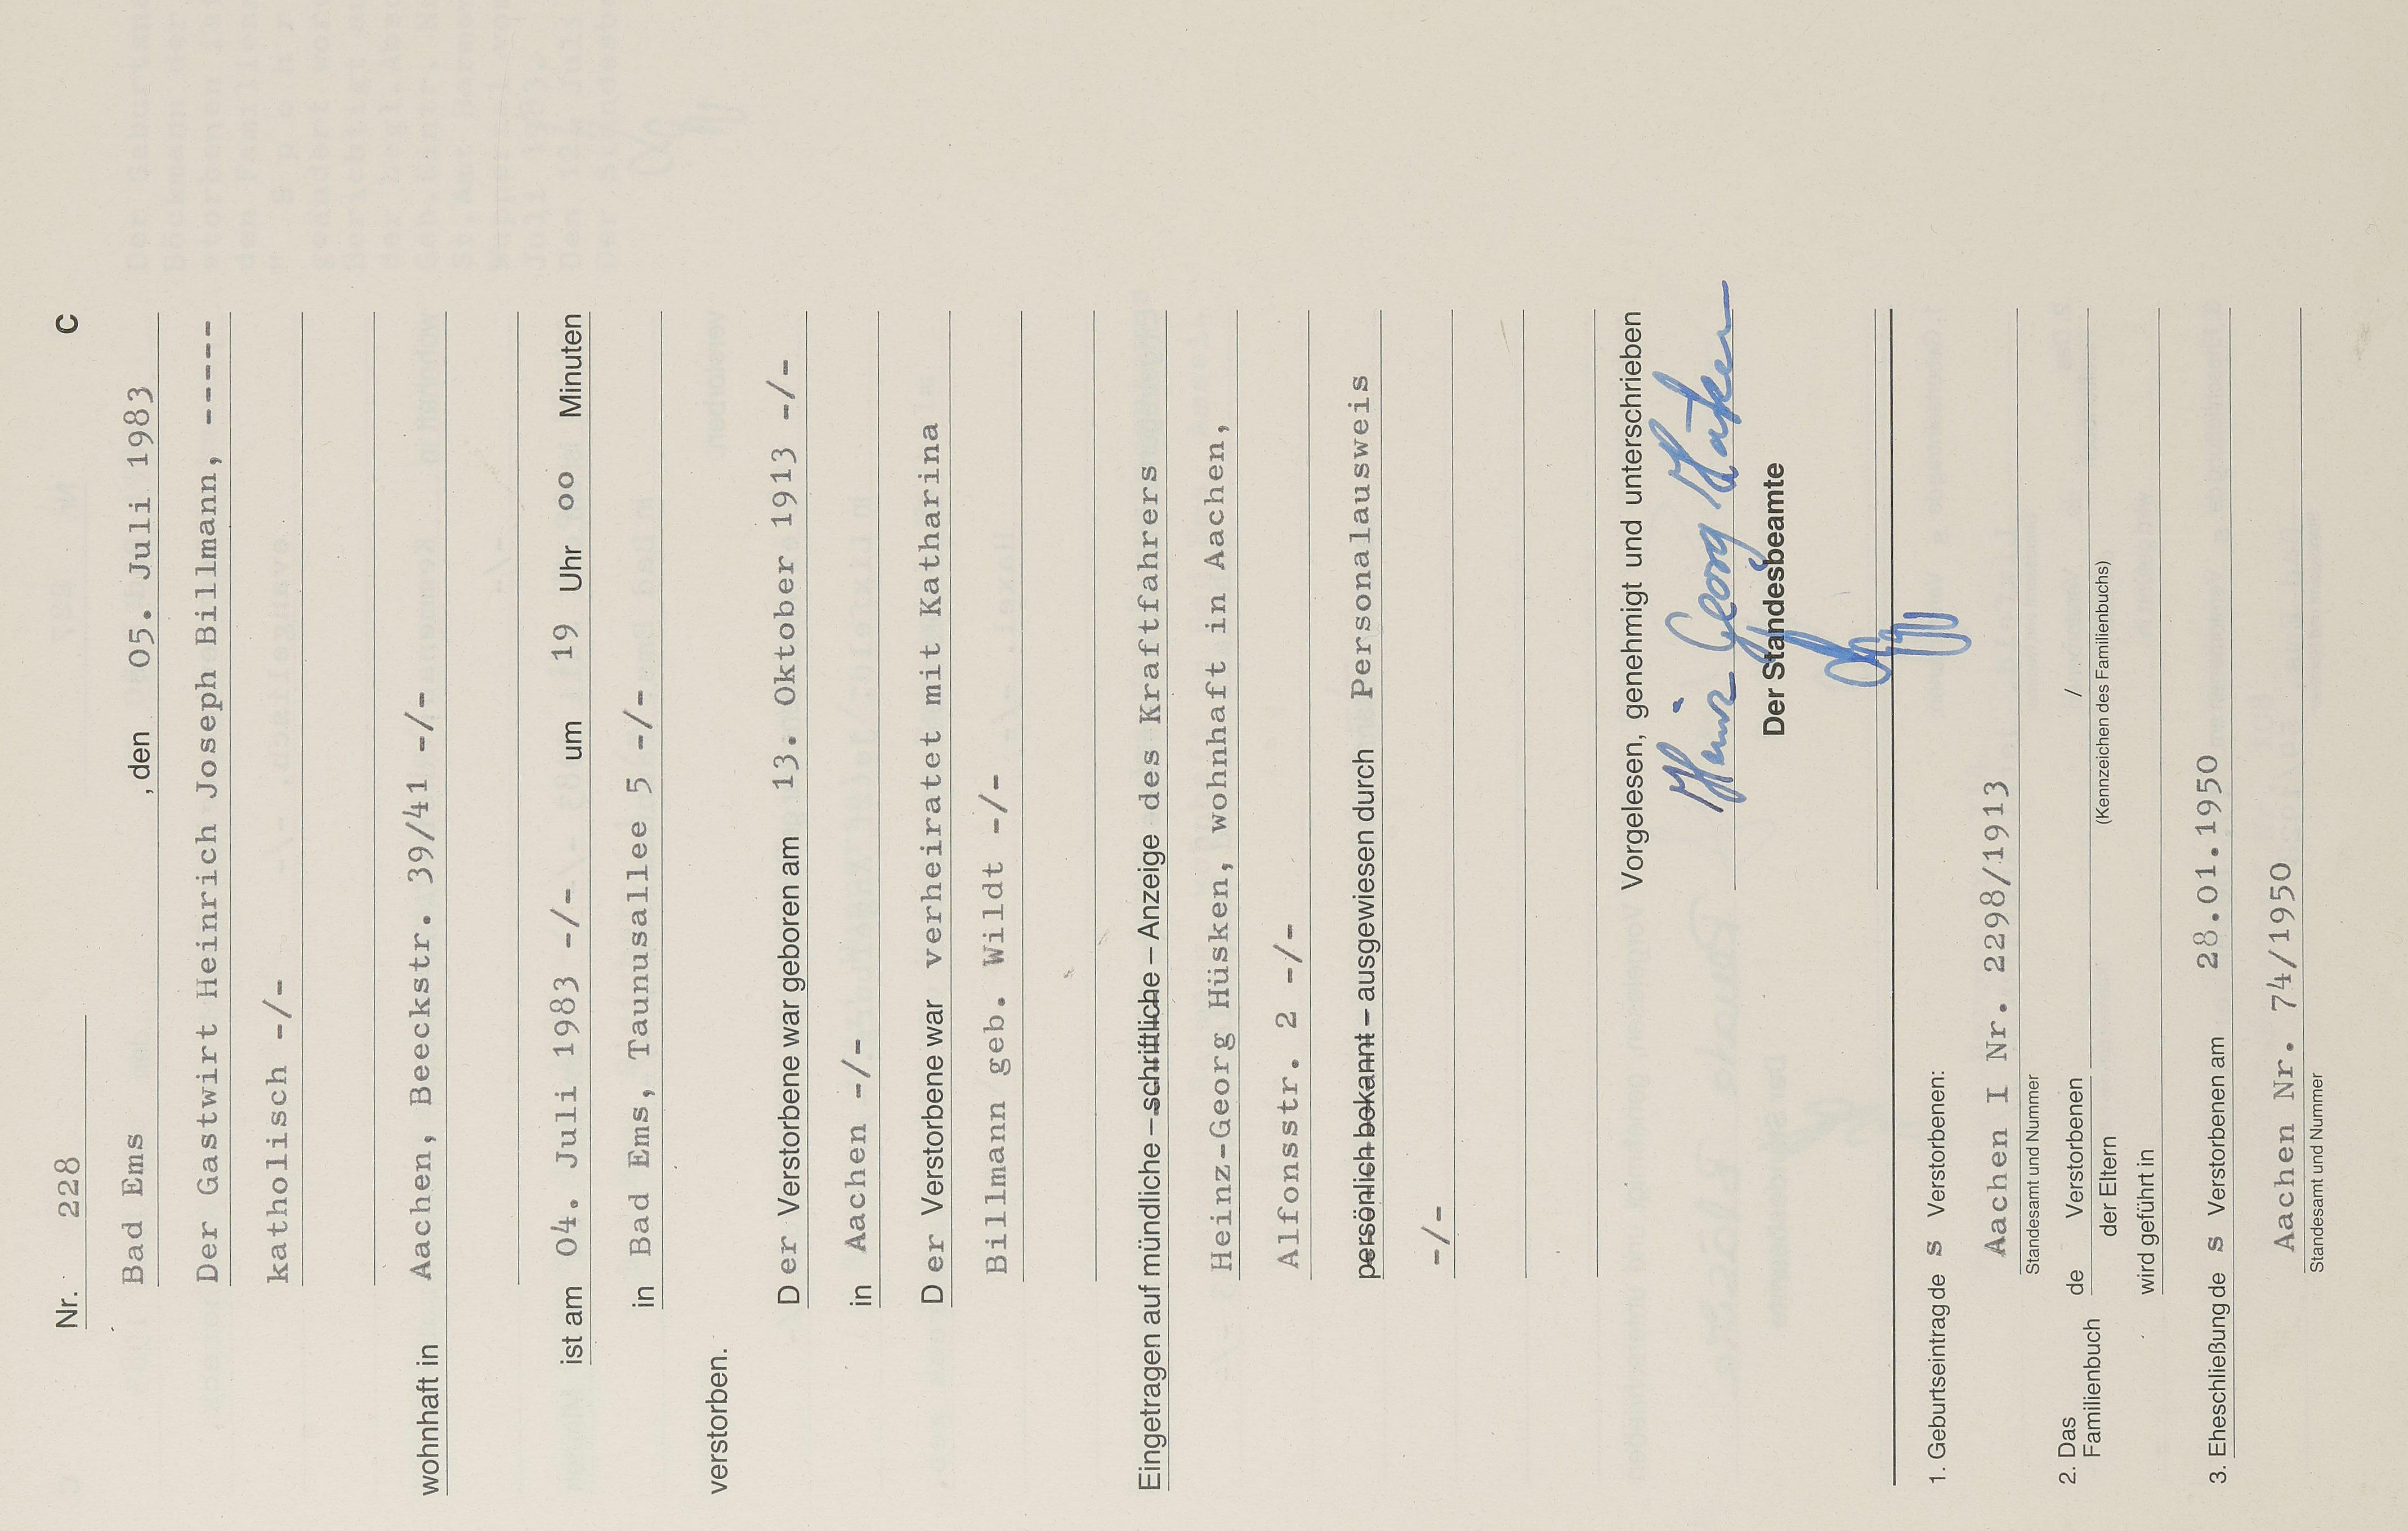 Nr. 228 C
Bad Ems , den 05. Juli 1983
Der Gastwirt Heinrich Joseph Billmann, -----
katholisch -/-
wohnhaft in Aachen, Beeckstr. 39/41 -/-
ist am 04. Juli 1983 -/- um 19 Uhr oo Minuten
in Bad Ems, Taunusallee 5 -/-
verstorben.
Der Verstorbene war geboren am 13. Oktober 1913 -/-
in Aachen -/-
Der Verstorbene war verheiratet mit Katharina
Billmann geb. Wildt -/-
Eingetragen auf mündliche – schriftliche – Anzeige des Kraftfahrers
Heinz-Georg Hüsken, wohnhaft in Aachen,
Alfonsstr. 2 -/-
persönlich bekannt – ausgewiesen durch Personalausweis
-/-
Vorgelesen, genehmigt und unterschrieben
Heinz Georg Hüsken
Der Standesbeamte
1. Geburtseintrag des Verstorbenen:
Aachen I Nr. 2298/1913
Standesamt und Nummer
2. Das Familienbuch de Verstorbenen /
der Eltern (Kennzeichen des Familienbuchs)
wird geführt in
3. Eheschließung des Verstorbenen am 28.01.1950
Aachen Nr. 74/1950
Standesamt und Nummer